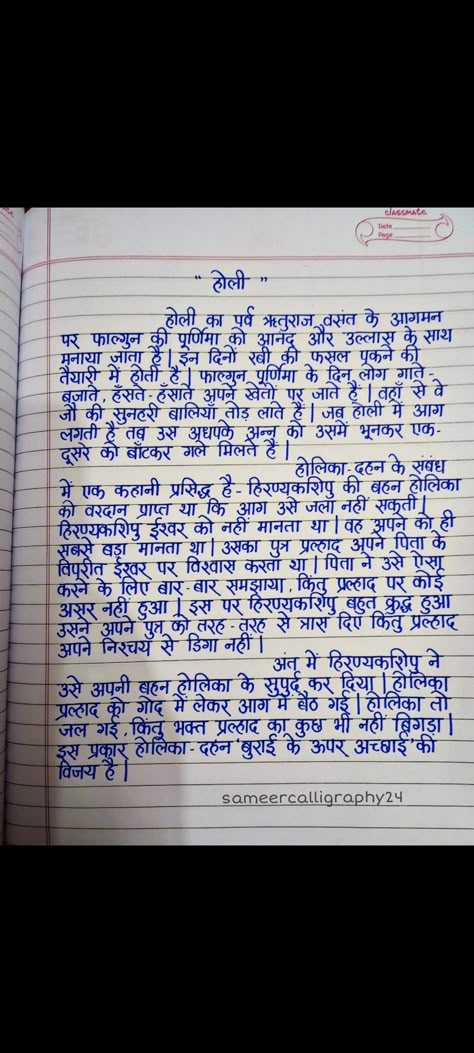 classmate
Date
Page
“ होली ”
होली का पर्व ऋतुराज वसंत के आगमन
पर फाल्गुन की पूर्णिमा को आनंद और उल्लास के साथ
मनाया जाता है | इन दिनों रबी की फसल पकने की
तैयारी में होती है | फाल्गुन पूर्णिमा के दिन लोग गाते -
बजाते , हँसते - हँसाते अपने खेतों पर जाते हैं | वहाँ से वे
जौ की सुनहरी बालियाँ तोड़ लाते हैं | जब होली में आग
लगती है तब उस अधपके अन्न को उसमें भूनकर एक-
दूसरे को बाँटकर गले मिलते हैं |
होलिका - दहन के संबंध
में एक कहानी प्रसिद्ध है - हिरण्यकशिपु की बहन होलिका
को वरदान प्राप्त था कि आग उसे जला नहीं सकती |
हिरण्यकशिपु ईश्वर को नहीं मानता था | वह अपने को ही
सबसे बड़ा मानता था | उसका पुत्र प्रल्हाद अपने पिता के
विपरीत ईश्वर पर विश्वास करता था | पिता ने उसे ऐसा
करने के लिए बार - बार समझाया , किंतु प्रल्हाद पर कोई
असर नहीं हुआ | इस पर हिरण्यकशिपु बहुत क्रुद्ध हुआ
उसने अपने पुत्र को तरह - तरह से त्रास दिए किंतु प्रल्हाद
अपने निश्चय से डिगा नहीं |
अंत में हिरण्यकशिपु ने
उसे अपनी बहन होलिका के सुपुर्द कर दिया | होलिका
प्रल्हाद को गोद में लेकर आग में बैठ गई | होलिका तो
जल गई , किंतु भक्त प्रल्हाद का कुछ भी नहीं बिगड़ा |
इस प्रकार होलिका - दहन ‘बुराई के ऊपर अच्छाई’ की
विजय है |
sameercalligraphy24